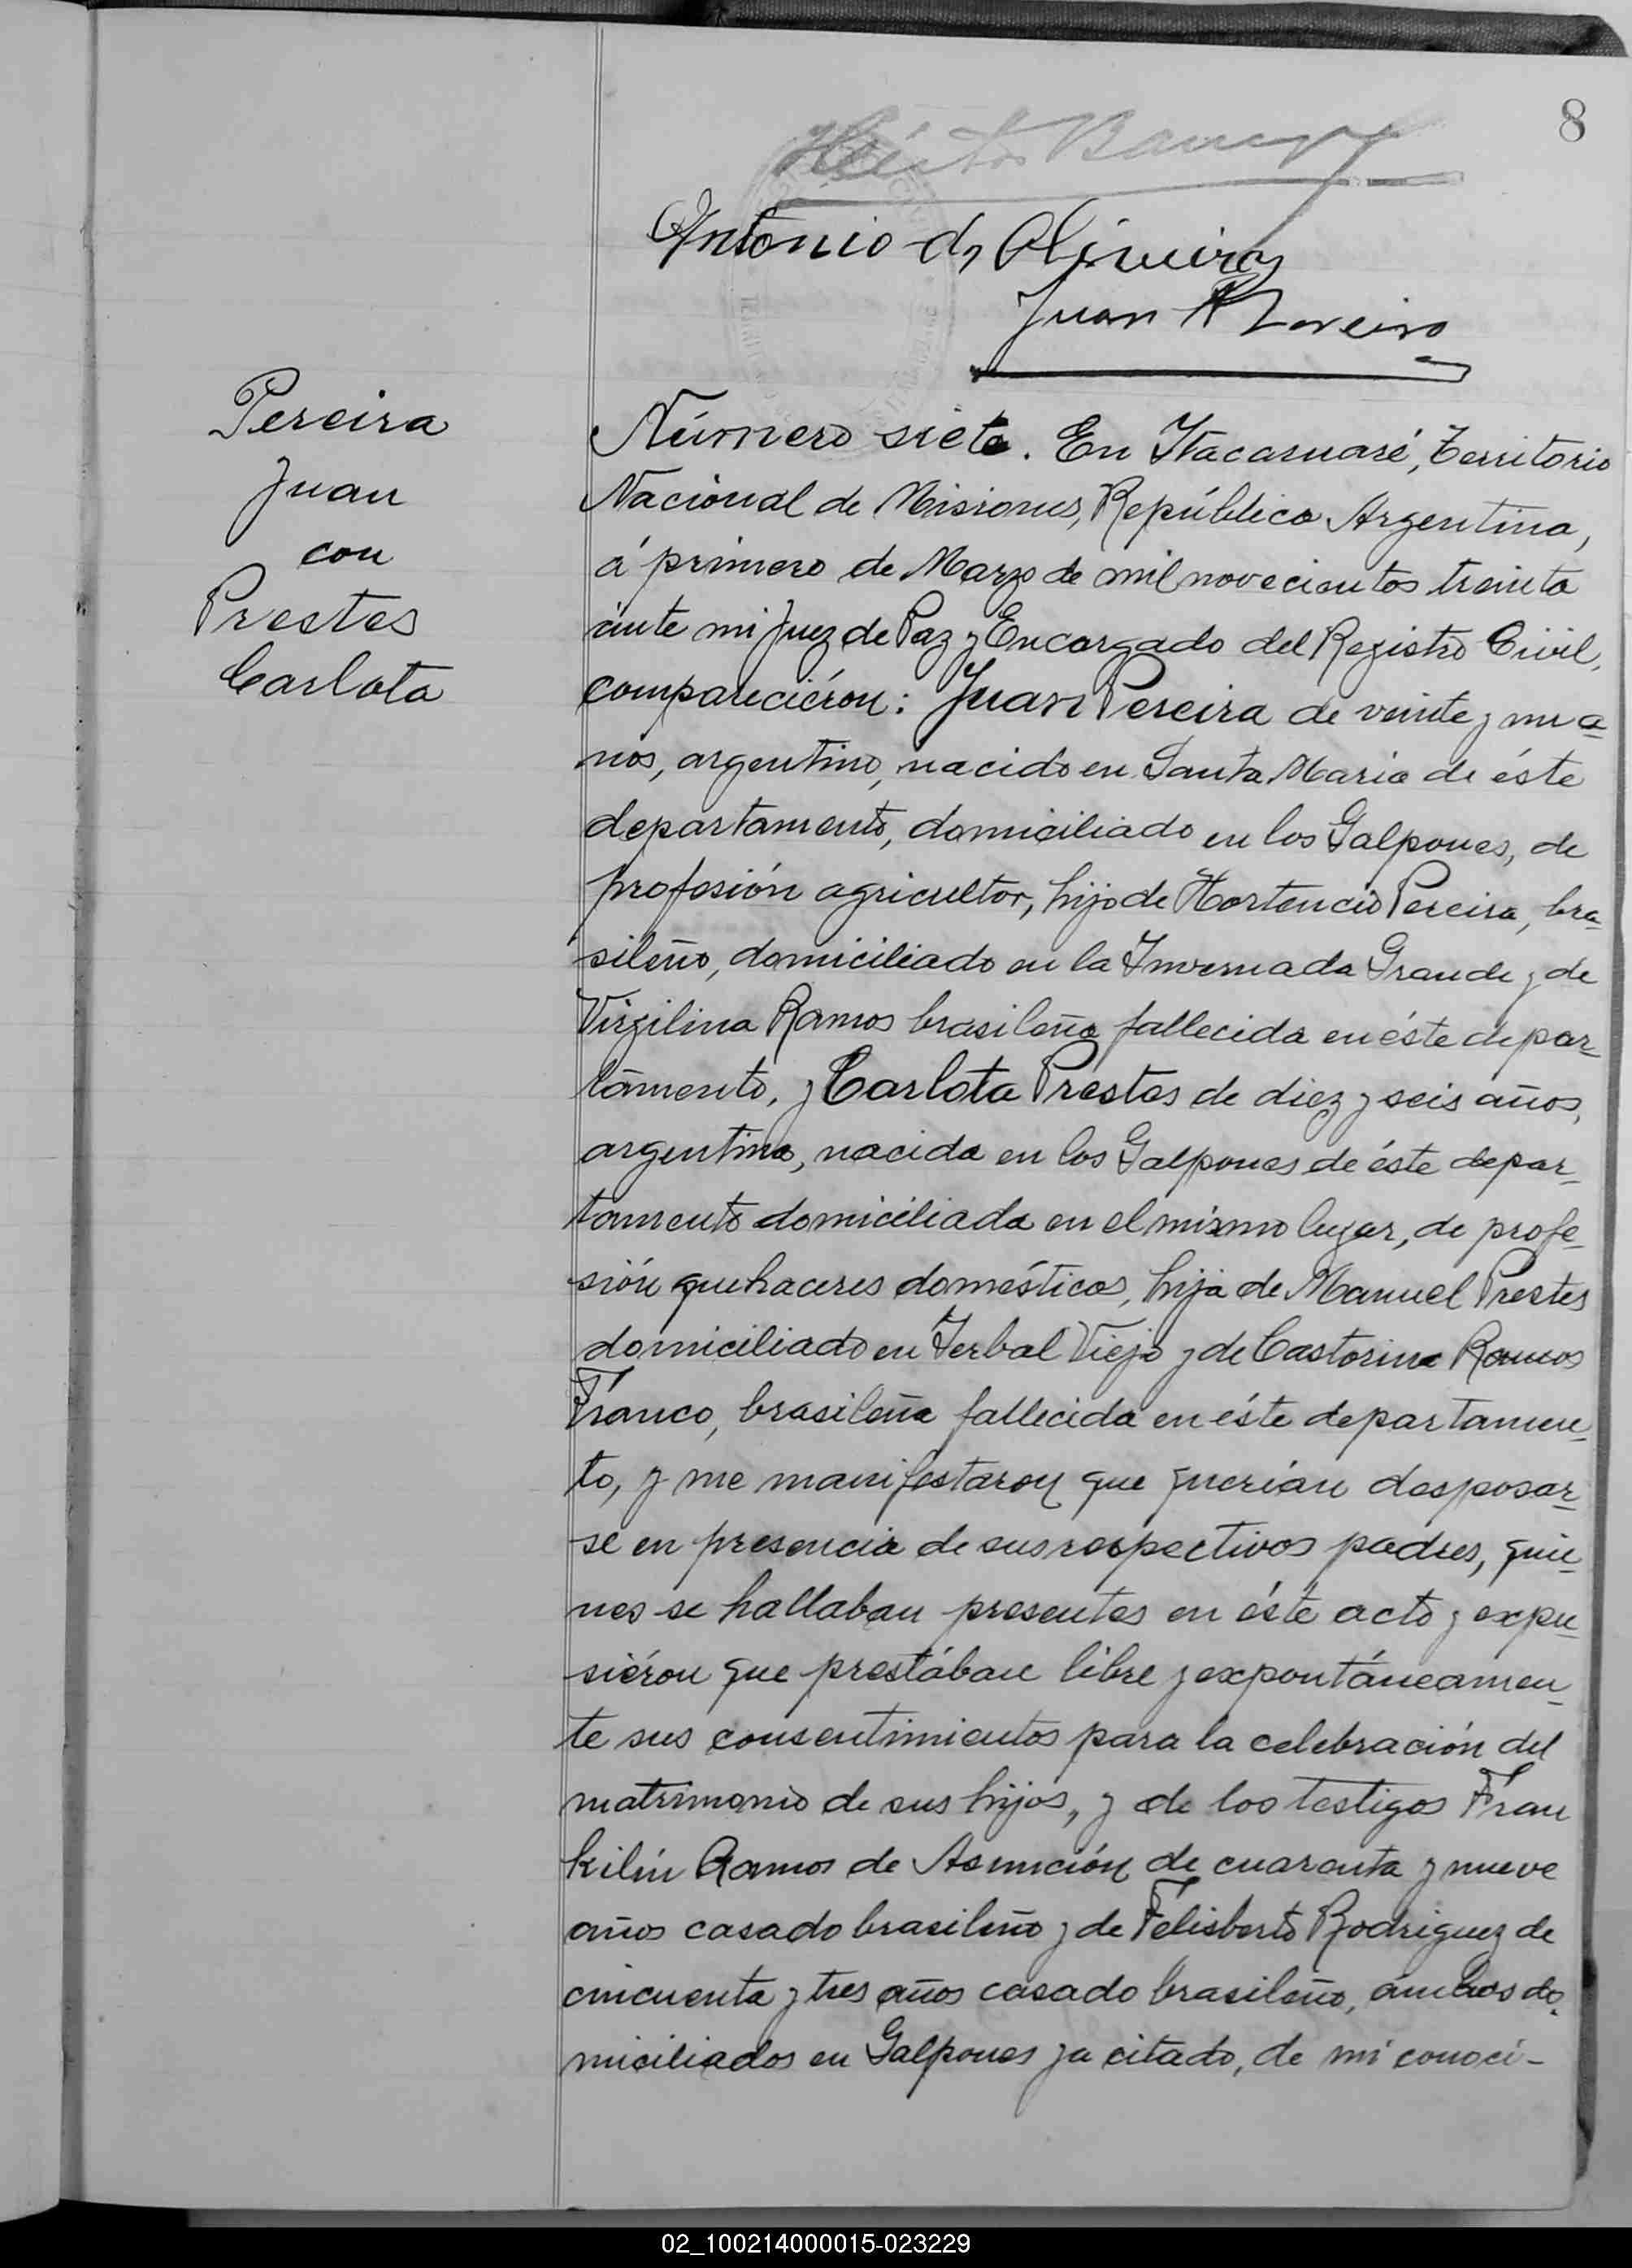 8
Antonio de Oliveira
Juan
Pereira
Juan
con
Prestes
Carlota
Número siete. En Itacaruaré, Territorio
Nacional de Misiones, República Argentina,
á primero de Marzo de mil novecientos treinta
ánte mi Juez de Paz y Encargado del Registro Civil,
compareciéron: Juan Pereira de veinte y un a-
ños, argentino, nacido en Santa Maria de éste
departamento, domiciliado en los Galpones, de
profesión agricultor, hijo de Hortencio Pereira, bra-
sileño, domiciliado en la Invernada Grande y de
Virgilina Ramos brasileña fallecida en éste depar-
támento, y Carlota Prestes de diez y seis años,
argentina, nacida en los Galpones de éste depar-
tamento domiciliada en el mismo lugar, de profe-
sión quehaceres domésticos, hija de Manuel Prestes
domiciliado en Yerbal Viejo y de Castorina Ramos
Franco, brasileña fallecida en éste departamen-
to, y me manifestaron que querían desposar-
se en presencia de sus respectivos padres, quie-
nes se hallaban presentes en éste acto y expu-
siéron que prestában libre y expontáneamen-
te sus consentimientos para la celebración del
matrimonio de sus hijos, y de los testigos Fran
kilín Ramos de Asunción de cuarenta y nueve
años casado brasileño y de Felisberto Rodriguez de
cincuenta y tres años casado brasileño, ámbos do-
miciliados en Galpones ya citado, de mi conoci-
02_100214000015-023229